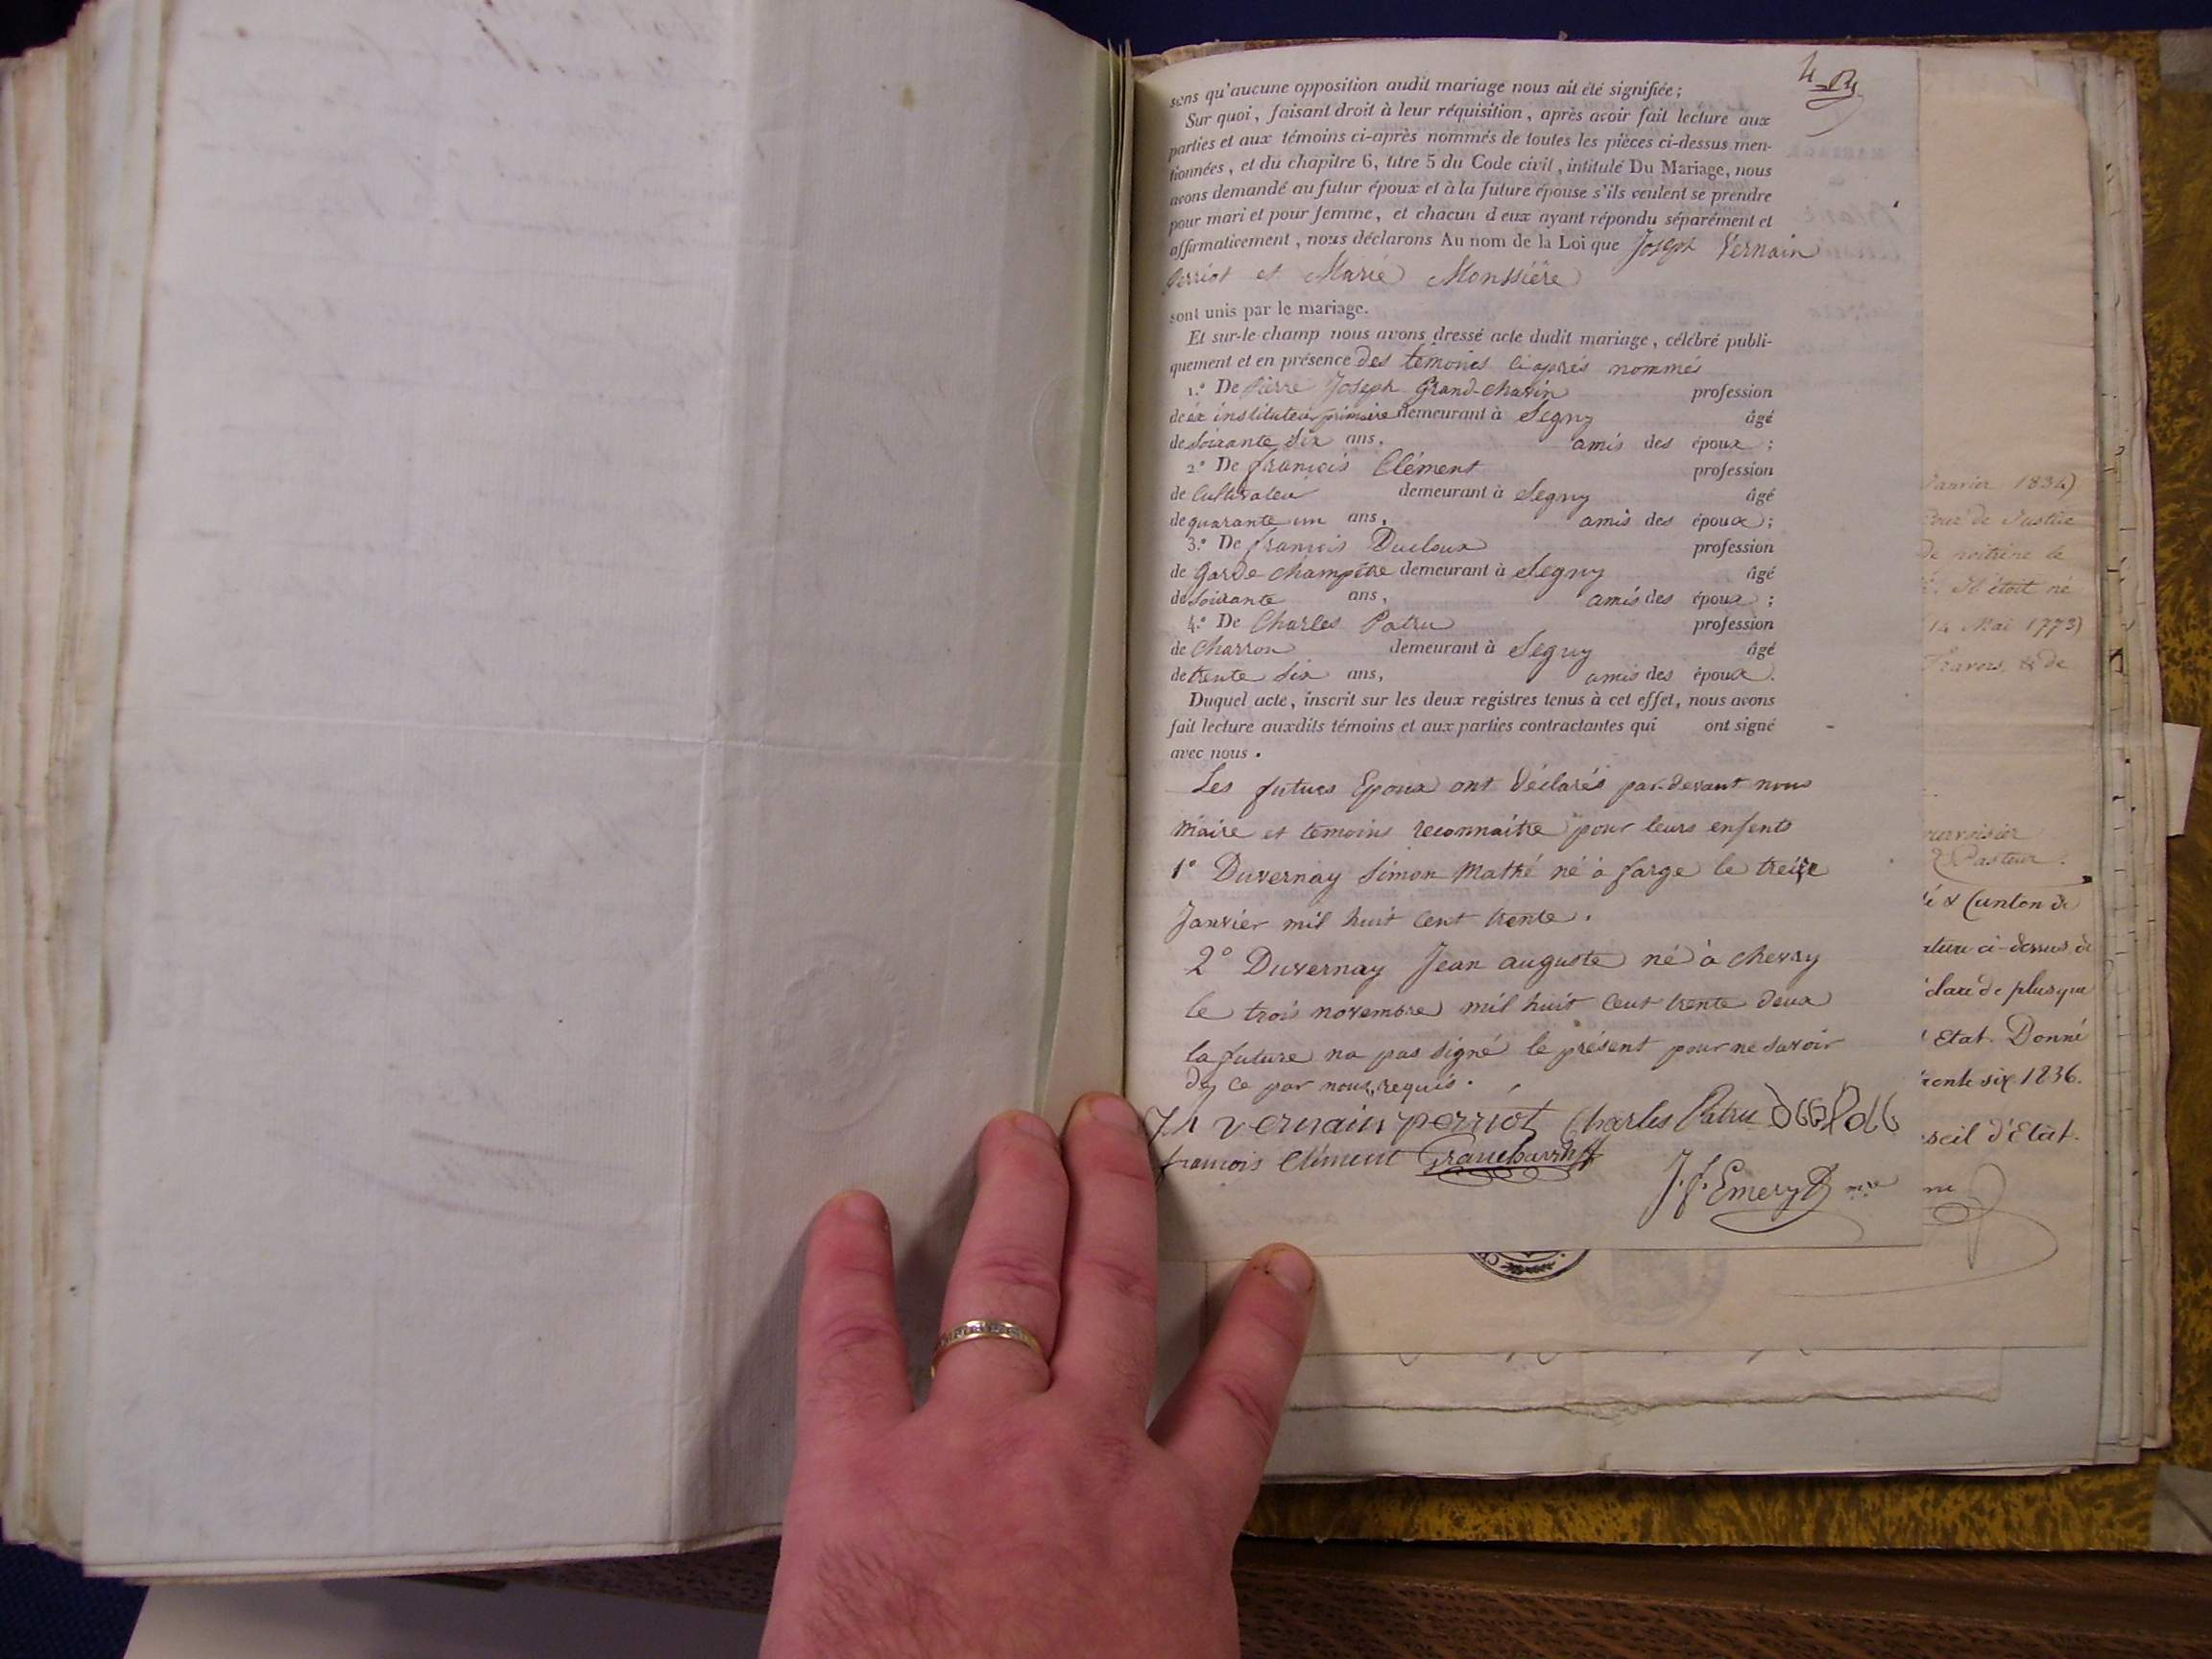 sans qu'aucune opposition audit mariage nous ait été signifiée ;
Sur quoi, faisant droit à leur réquisition, après avoir fait lecture aux
parties et aux témoins ci-après nommés de toutes les pièces ci-dessus men-
tionnées, et du chapitre 6, titre 5 du Code civil, intitulé Du Mariage, nous
avons demandé au futur époux et à la future épouse s'ils veulent se prendre
pour mari et pour femme, et chacun d'eux ayant répondu séparément et
affirmativement, nous déclarons Au nom de la Loi que Joseph Vernain
Perriot et Marie Monssière
sont unis par le mariage.
Et sur-le champ nous avons dressé acte dudit mariage, célébré publi-
quement et en présence des témoins ci après nommés
1.° De Pierre Joseph Grand-Chavin profession
de ex instituteur primaire demeurant à Segny âgé
de soixante dix ans, amis des époux ;
2.° De françois Clément profession
de Cultivateur demeurant à Segny âgé
de quarante un ans, amis des époux ;
3.° De françois Ducloux profession
de Garde champêtre demeurant à Segny âgé
de soixante ans, amis des époux ;
4.° De Charles Patru profession
de Charron demeurant à Segny âgé
de trente six ans, amis des époux.
Duquel acte, inscrit sur les deux registres tenus à cet effet, nous avons
fait lecture auxdits témoins et aux parties contractantes qui ont signé
avec nous.
Les futurs Epoux ont déclarés par-devant nous
Maire et témoins reconnaitre pour leurs enfents
1° Duvernay Simon Mathé né à farge le treize
Janvier mil huit cent trente.
2° Duvernay Jean auguste né à chevry
le trois novembre mil huit cent trente deux
la future na pas signé le présent pour ne savoir
de ce par nous requis.
Jh vernain perriot Charles Patru
françois Clément
J. f. Emery
Janvier 1834)
de Justice
de poitrine le
Il étoit né
14 Mai 1773)
Travers, & de
Pasteur.
é & Canton de
ature ci-dessus de
clare de plus que
Etat. Donné
trente six 1836.
seil d'Etat.